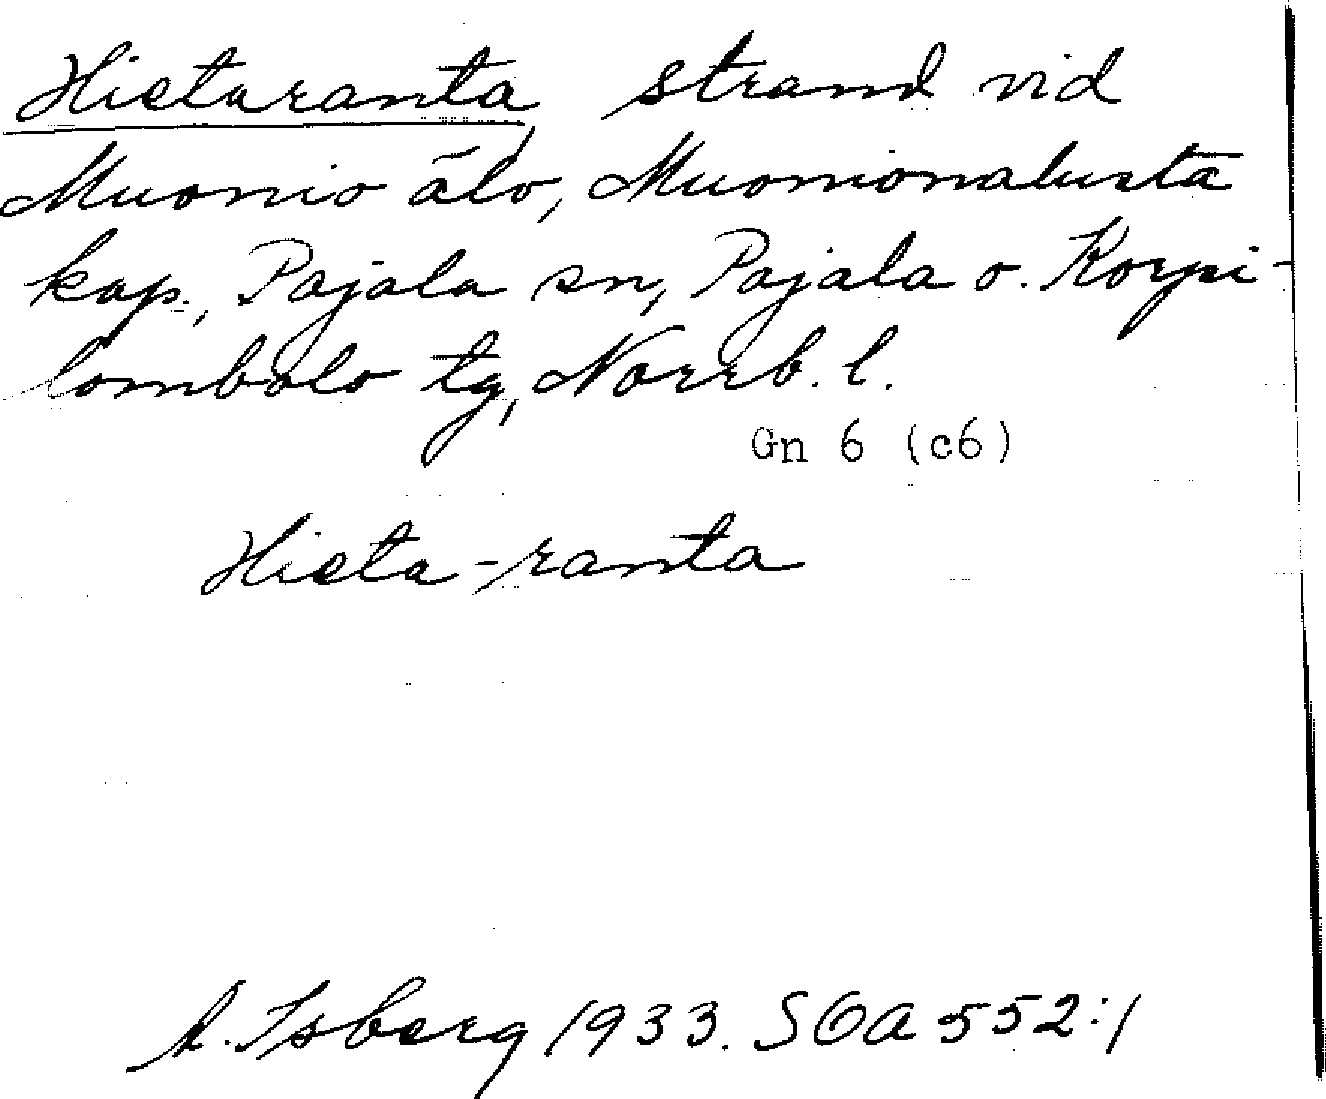 Hietaranta, strand vid
Muonio älv, Muonionalusta
kap., Pajala sn, Pajala o. Korpi-
lombolo tg, Norrb. l.
Gn 6 (c6)
Hieta-ranta
A. Isberg 1933. SOA 552:1